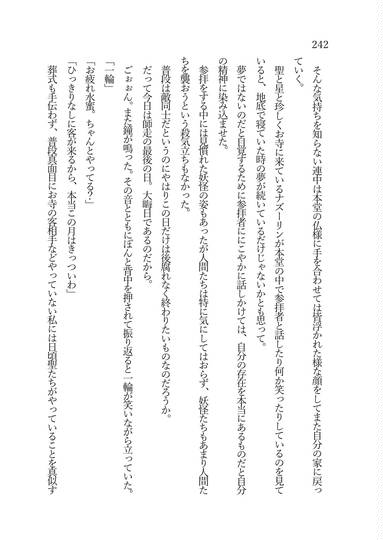 242
そんな気持ちを知らない連中は本堂の仏様に手を合わせては皆浮かれた様な顔をしてまた自分の家に戻っ
ていく。
聖と星と珍しくお寺に来ているナズーリンが本堂の中で参拝者と話したり何か笑ったりしているのを見て
いると、地底で寝ていた時の夢が続いているだけじゃないかとも思って。
夢ではないのだと自覚するために参拝者ににこやかに話しかけては、自分の存在を本当にあるものだと自分
の精神に染み込ませた。
参拝をする中には見慣れた妖怪の姿もあったが人間たちは特に気にしてはおらず、妖怪たちもあまり人間た
ちを襲おうという殺気立ちもなかった。
普段は敵同士だというのにやはりこの日だけは後腐れなく終わりたいものなのだろうか。
だって今日は師走の最後の日。大晦日であるのだから。
ごぉぉん。また鐘が鳴った。その音とともにぽんと背中を押されて振り返ると一輪が笑いながら立っていた。
「一輪」
「お疲れ水蜜。ちゃんとやってる?」
「ひっきりなしに客が来るから、本当この月はきっついわ」
葬式も手伝わず、普段真面目にお寺の客相手などやっていない私には日頃聖たちがやっていることを真似す